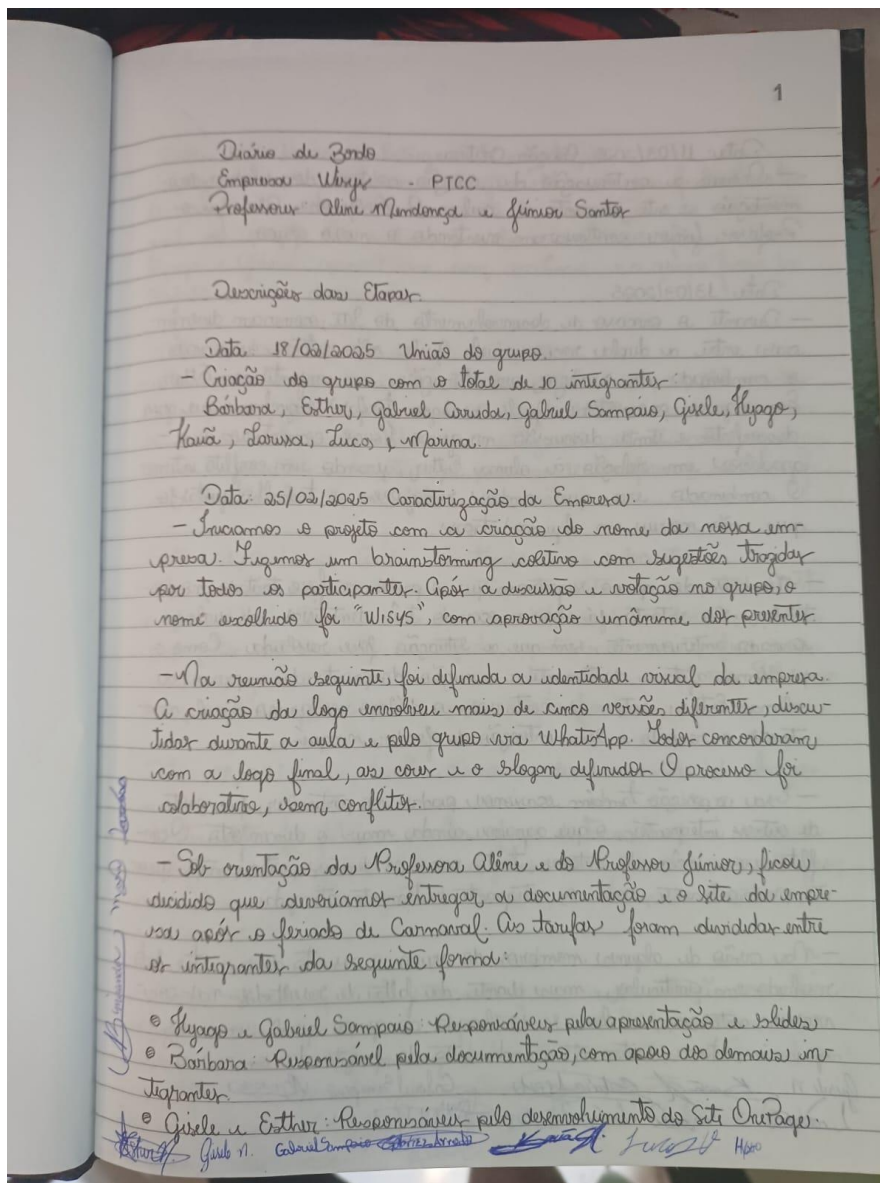 1
Diário de Bordo
Empresa Wisys - PTCC
Professores Aline Mendonça e Júnior Santos
Descrições das Etapas
Data 18/02/2025 União do grupo
- Criação do grupo com o total de 10 integrantes:
Bárbara, Esther, Gabriel Arruda, Gabriel Sampaio, Gisele, Hyago,
Kauã, Larissa, Lucas e Marina.
Data: 25/02/2025 Caracterização da Empresa.
- Iniciamos o projeto com a criação do nome da nossa em-
presa. Fizemos um brainstorming coletivo com sugestões trazidas
por todos os participantes. Após a discussão e votação no grupo, o
nome escolhido foi "WISYS", com aprovação unânime dos presentes
- Na reunião seguinte, foi definida a identidade visual da empresa.
A criação da logo envolveu mais de cinco versões diferentes, discu-
tidas durante a aula e pelo grupo via WhatsApp. Todos concordaram
com a logo final, as cores e o slogan definidos O processo foi
colaborativo, sem conflitos.
- Sob orientação da Professora Aline e do Professor Júnior, ficou
decidido que deveríamos entregar a documentação e o site da empre-
sa após o feriado de Carnaval. As tarefas foram divididas entre
os integrantes da seguinte forma:
Hyago e Gabriel Sampaio: Responsáveis pela apresentação e slides
Bárbara: Responsável pela documentação, com apoio dos demais in-
tegrantes
Gisele e Esther: Responsáveis pelo desenvolvimento do Site OnePage.
Gisele n. Gabriel Sampaio